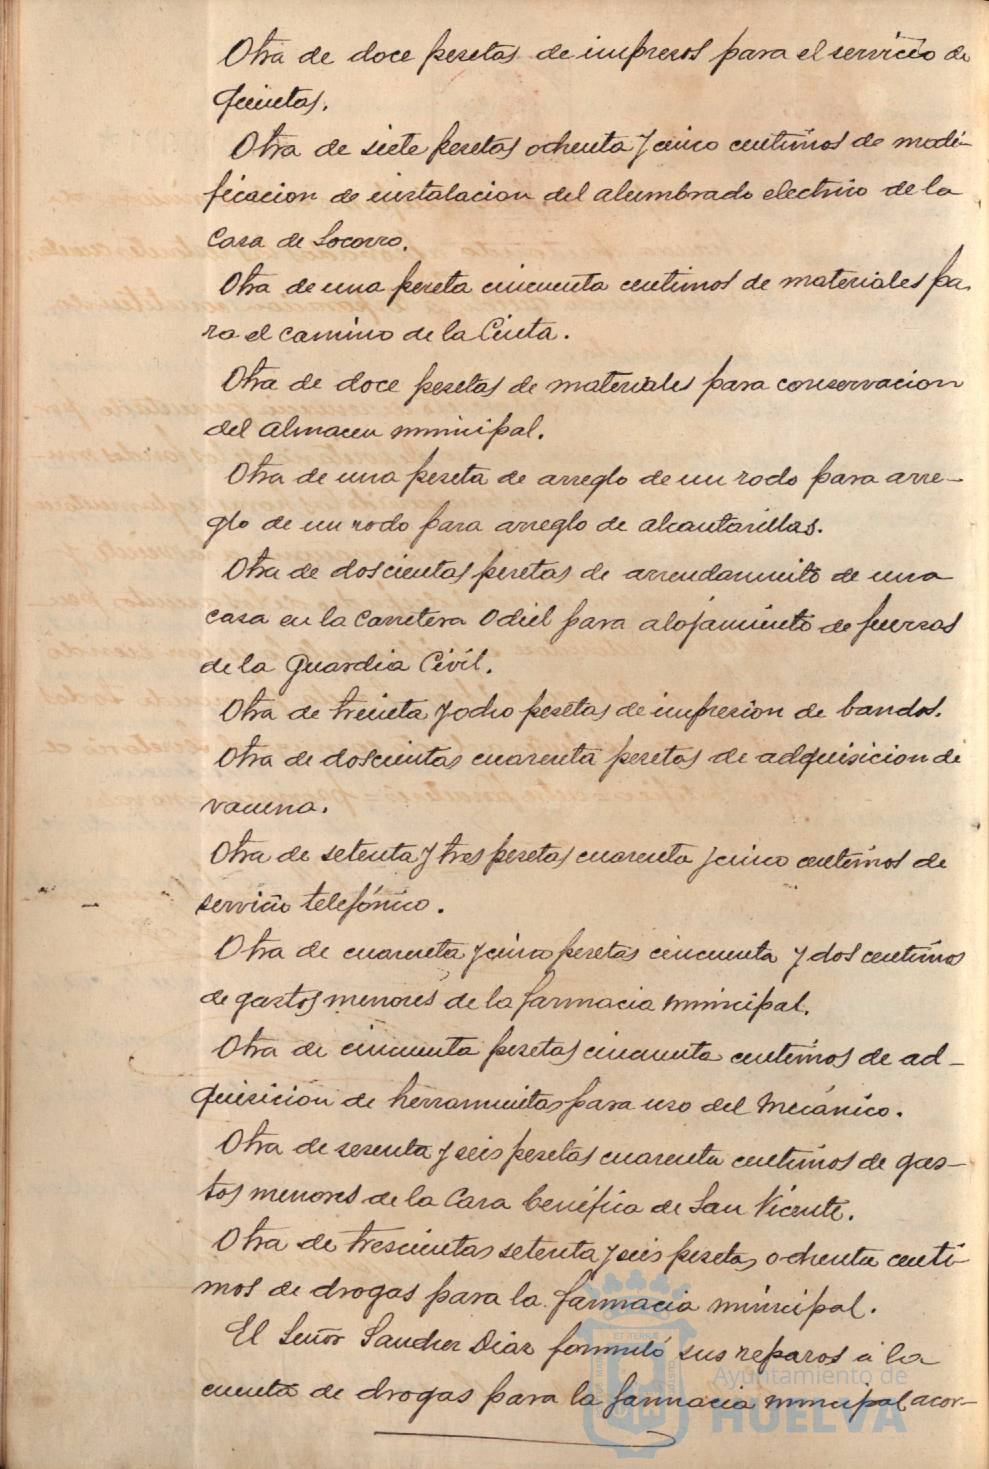 Otra de doce pesetas de impresos para el servicio de
quintas.
Otra de siete pesetas ochenta y cinco centimos de modi-
ficacion de instalacion del alumbrado electrico de la
Casa de Socorro.
Otra de una peseta cincuenta centimos de materiales pa-
ra el camino de la Cinta.
Otra de doce pesetas de materiales para conservacion
del Almacen municipal.
Otra de una peseta de arreglo de un rodo para arre-
glo de un rodo para arreglo de alcantarillas.
Otra de doscientas pesetas de arrendamiento de una
casa en la Carretera Odiel para alojamiento de fuerzas
de la Guardia Civil.
Otra de treinta y ocho pesetas de impresion de bandos.
Otra de doscientas cuarenta pesetas de adquisicion de
vacuna.
Otra de setenta y tres pesetas cuarenta y cinco centimos de
servicio telefónico.
Otra de cuarenta y cinco pesetas cincuenta y dos centimos
de gastos menores de la farmacia municipal.
Otra de cincuenta pesetas cincuenta centimos de ad-
quisicion de herramientas para uso del Mecánico.
Otra de sesenta y seis pesetas cuarenta centimos de gas-
tos menores de la Casa benéfica de San Vicente.
Otra de trescientas setenta y seis pesetas ochenta centi-
mos de drogas para la farmacia municipal.
El Señor Sanchez Diaz formuló sus reparos á la
cuenta de drogas para la farmacia municipal acor-
Ayuntamiento de
HUELVA